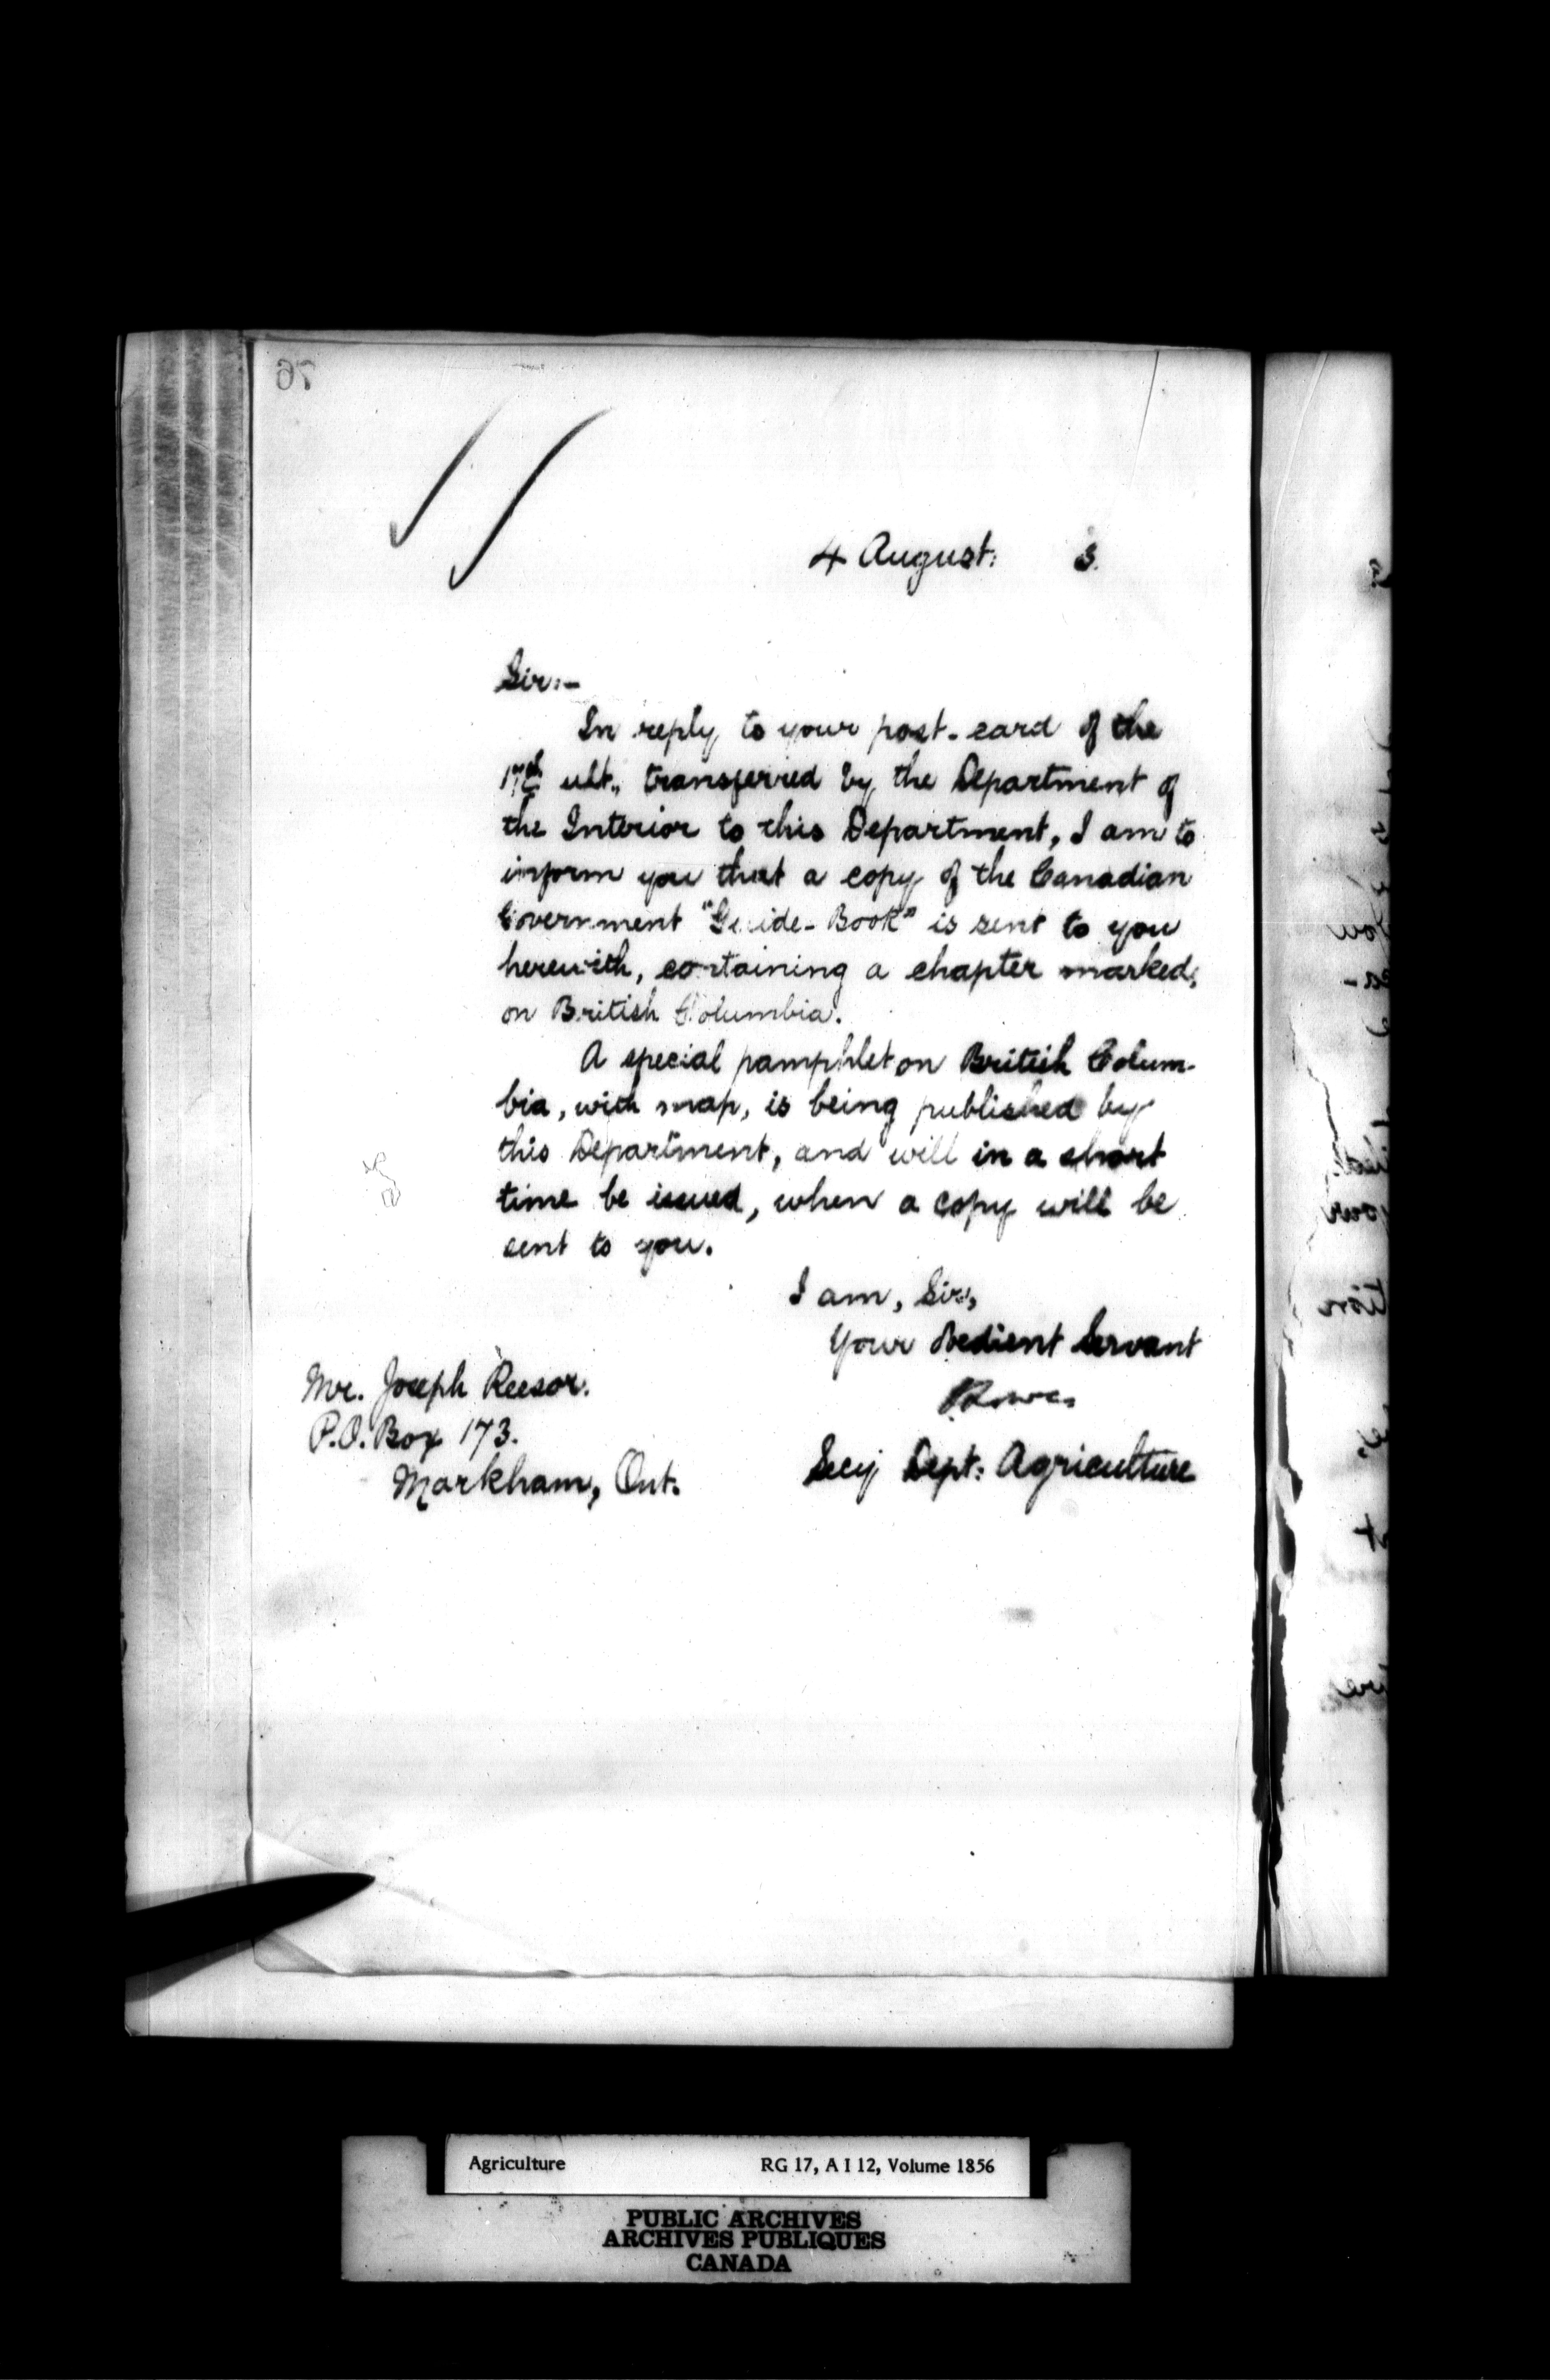 76
4 August: 3.
Sir:-
In reply to your post-card of the
17th ult., transferred by the Department of
the Interior to this Department, I am to
inform you that a copy of the Canadian
Government "Guide-Book" is sent to you
herewith, containing a chapter marked,
on British Columbia.
A special pamphlet on British Colum-
bia, with map, is being published by
this Department, and will in a short
time be issued, when a copy will be
sent to you.
I am, Sir,
Your Obedient Servant
Secy Dept: Agriculture
Mr. Joseph Reesor.
P.O. Box 173.
Markham, Ont.
Agriculture RG 17, A I 12, Volume 1856
PUBLIC ARCHIVES
ARCHIVES PUBLIQUES
CANADA